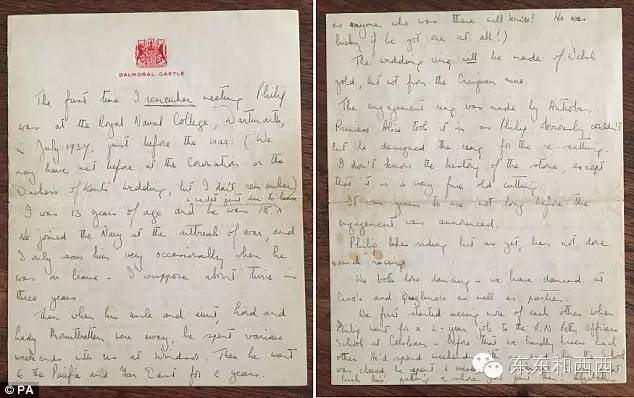 BALMORAL CASTLE
The first time I remember meeting Philip
was at the Royal Naval College, Dartmouth,
in July 1939, just before the war. (We
may have met before at the Coronation or the
Duchess of Kent's wedding, but I don't remember)
a cadet just due to leave.
I was 13 years of age and he was 18
He joined the Navy at the outbreak of war, and
I only saw him very occasionally when he
was on leave - I suppose about twice in
three years.
Then when his uncle and aunt, Lord and
Lady Mountbatten were away, he spent various
weekends with us at Windsor. Then he went
to the Pacific and Far East for 2 years.
PA
as anyone who was there will know! He was
lucky if he got one at all!)
The wedding ring will be made of Welsh
gold, but not from the Craigwen mine.
The engagement ring was made by Antrobus.
Princess Alice took it in as Philip obviously couldn't
but he designed the ring for the re-setting.
I don't know the history of the stone, except
that it is a very fine old cutting.
It was given to me not long before the
engagement was announced.
Philip likes riding but as yet, has not done
much racing
We both love dancing - we have danced at
Ciro's and Quaglino's as well as parties.
We first started seeing more of each other when
Philip went for a 2-year job to the R.N. Petty Officers
School at Corsham - before that we hardly knew each
other. He'd spend weekends
was closed he spent 6 weeks
东东和西西